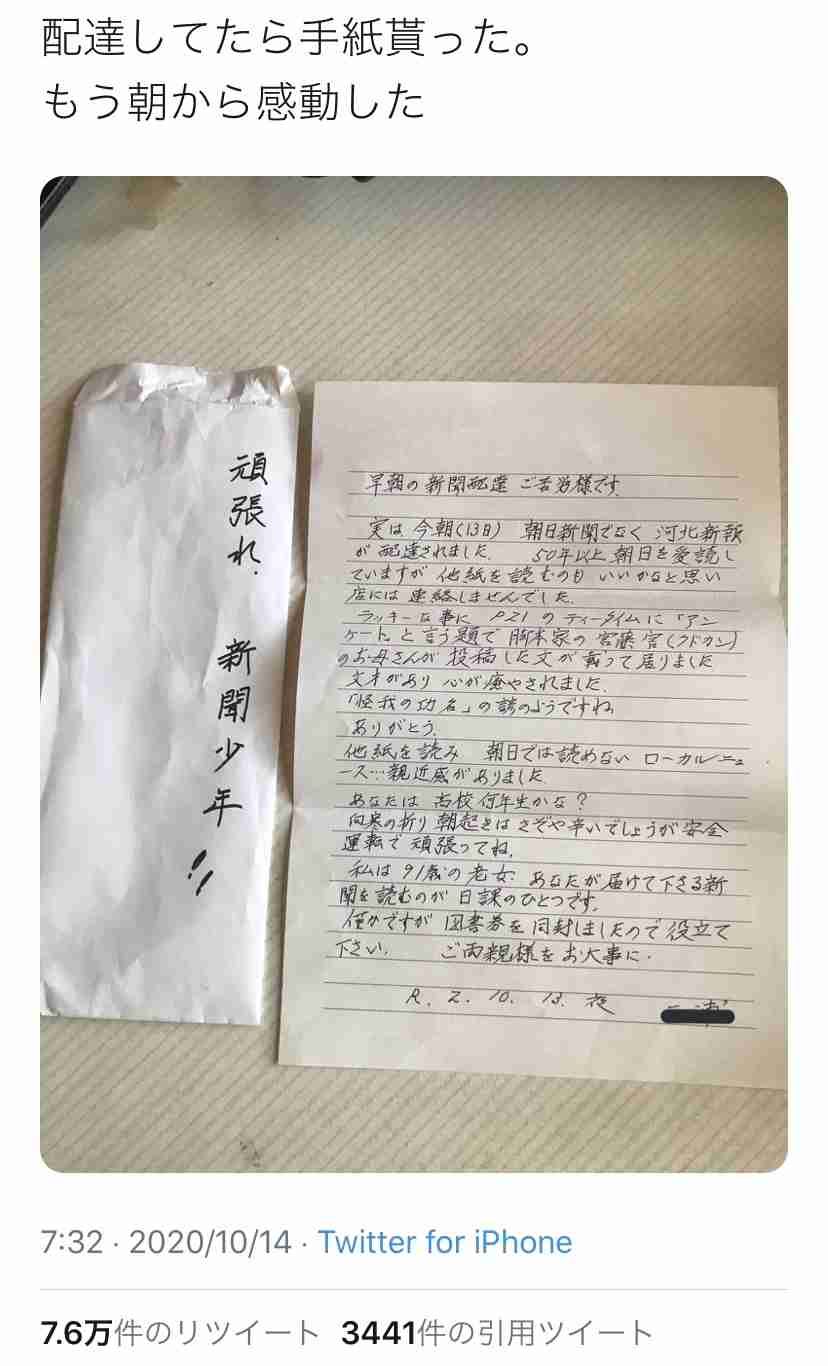 配達してたら手紙貰った。
もう朝から感動した
頑張れ、新聞少年!!
早朝の新聞配達 ご苦労様です。
実は今朝(13日) 朝日新聞でなく 河北新報
が配達されました。 50年以上朝日を愛読し
ていますが 他紙を読むのも いいかなと思い
店には連絡しませんでした。
ラッキーな事に P21のティータイムに「アン
ケート」と言う題で 脚本家の宮藤官(クドカン)
のお母さんが 投稿した文が載って居りました
文才があり 心が癒やされました。
「怪我の功名」の諺のようですね。
ありがとう。
他紙を読み 朝日では読めない ローカルニュ
ース…親近感がありました
あなたは 高校何年生かな?
向寒の折り 朝起きはさぞや辛いでしょうが安全
運転で頑張ってね。
私は91歳の老女、あなたが届けて下さる新
聞を読むのが 日課のひとつです。
僅かですが 図書券を同封しましたので役立て
下さい。 ご両親様をお大事に。
R. 2. 10. 13. 夜
7:32 · 2020/10/14 · Twitter for iPhone
7.6万件のリツイート 3441件の引用ツイート